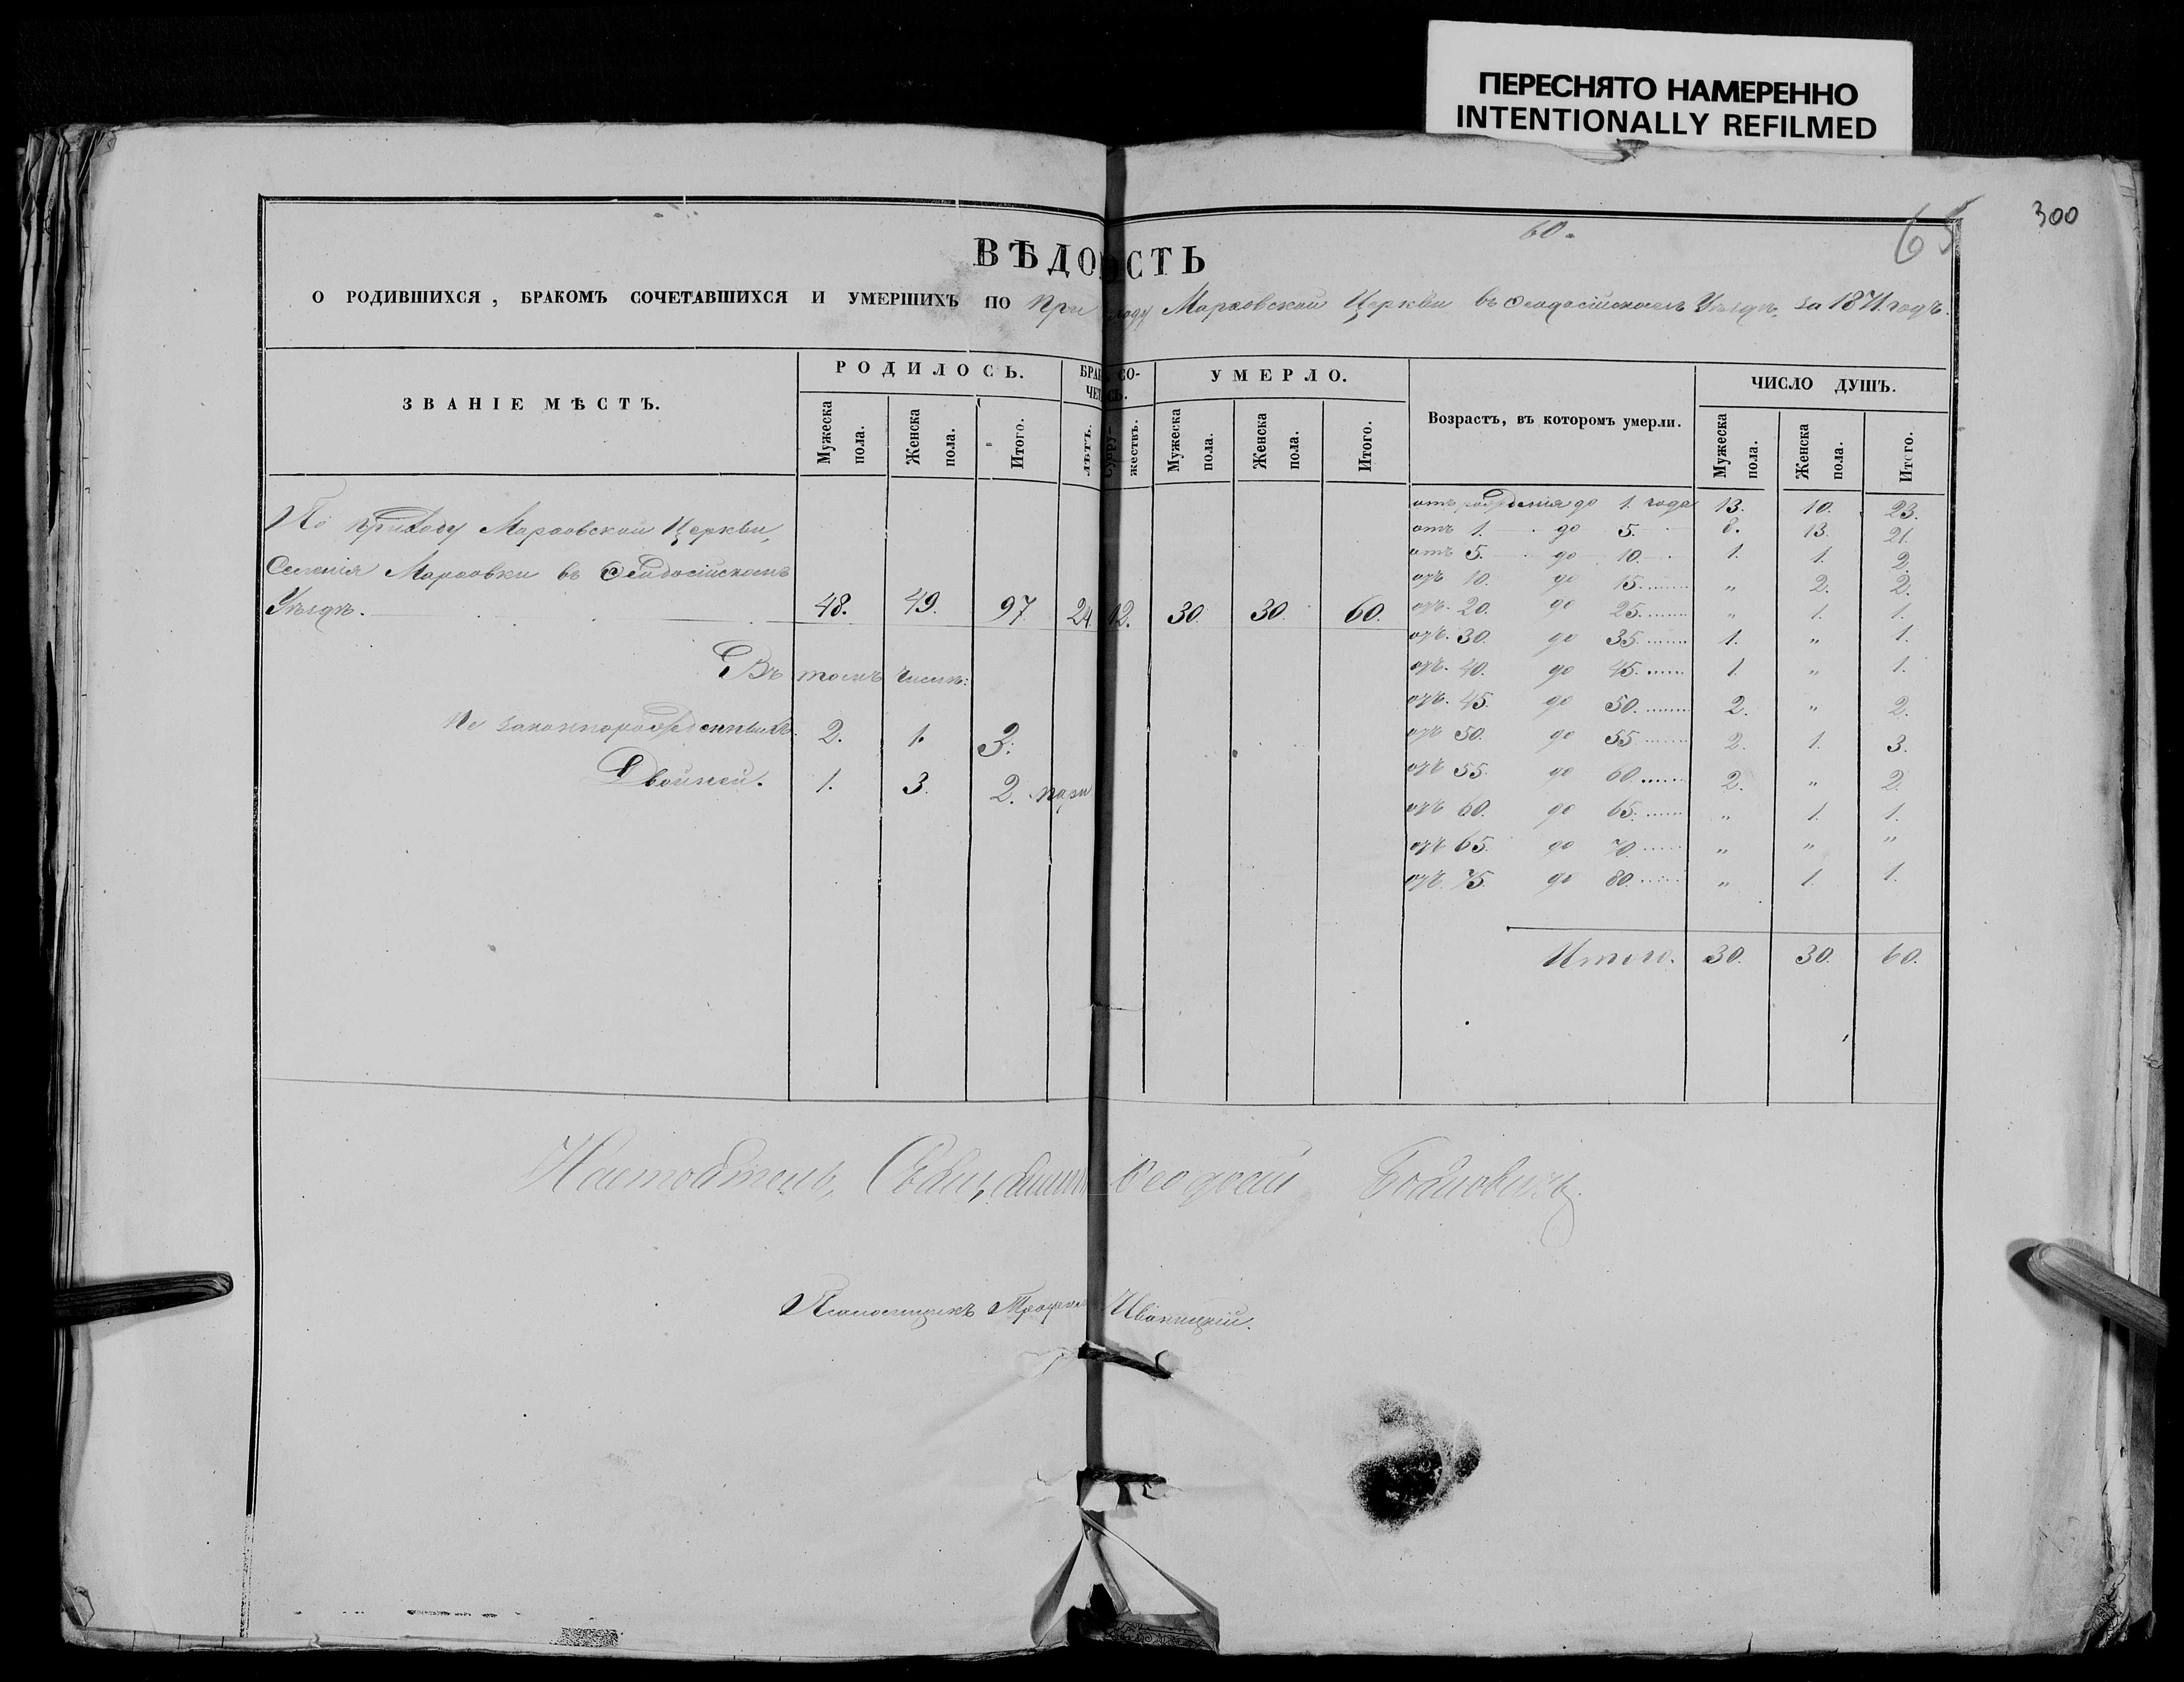 ПЕРЕСНЯТО НАМЕРЕННО
INTENTIONALLY REFILMED
300
60.
65
ВѢДОМОСТЬ
О РОДИВШИХСЯ, БРАКОМЪ СОЧЕТАВШИХСЯ И УМЕРШИХЪ ПО приходу Марфовской Церкви въ Ѳеодосійскомъ Уѣздѣ, за 1871 годъ.
ЗВАНІЕ МѢСТЪ.
РОДИЛОСЬ.
БРАК СО-
ЧЕТ СЬ.
УМЕРЛО.
Возрастъ, въ которомъ умерли.
ЧИСЛО ДУШЪ.
Мужеска пола.
Женска пола.
Итого.
лѣтъ.
Супру-
жествъ.
Мужеска пола.
Женска пола.
Итого.
Мужеска пола.
Женска пола.
Итого.
По приходу Марфовской Церкви,
Селенія Марфовки въ Ѳеодосійскомъ
Уѣздѣ. 48. 49. 97 24. 12. 30. 30. 60.
Въ томъ числѣ:
Не законнорожденныхъ. 2. 1. 3.
Двойней. 1. 3. 2. пары
отъ рожденія до 1. года 13. 10. 23.
отъ 1. до 5. 8. 13. 21.
отъ 5. до 10. 1. 1. 2.
отъ 10. до 15. " 2. 2.
отъ 20. до 25. " 1. 1.
отъ 30. до 35. 1. " 1.
отъ 40. до 45. 1. " 1.
отъ 45. до 50. 2. " 2.
отъ 50. до 55 2. 1. 3.
отъ 55. до 60 2. " 2.
отъ 60. до 65. " 1. 1.
отъ 65. до 70. " " "
отъ 75. до 80. " 1. 1.
Итого. 30. 30. 60.
Настоятель, Священникъ Ѳеодосій
Псаломщикъ Иваницкій.